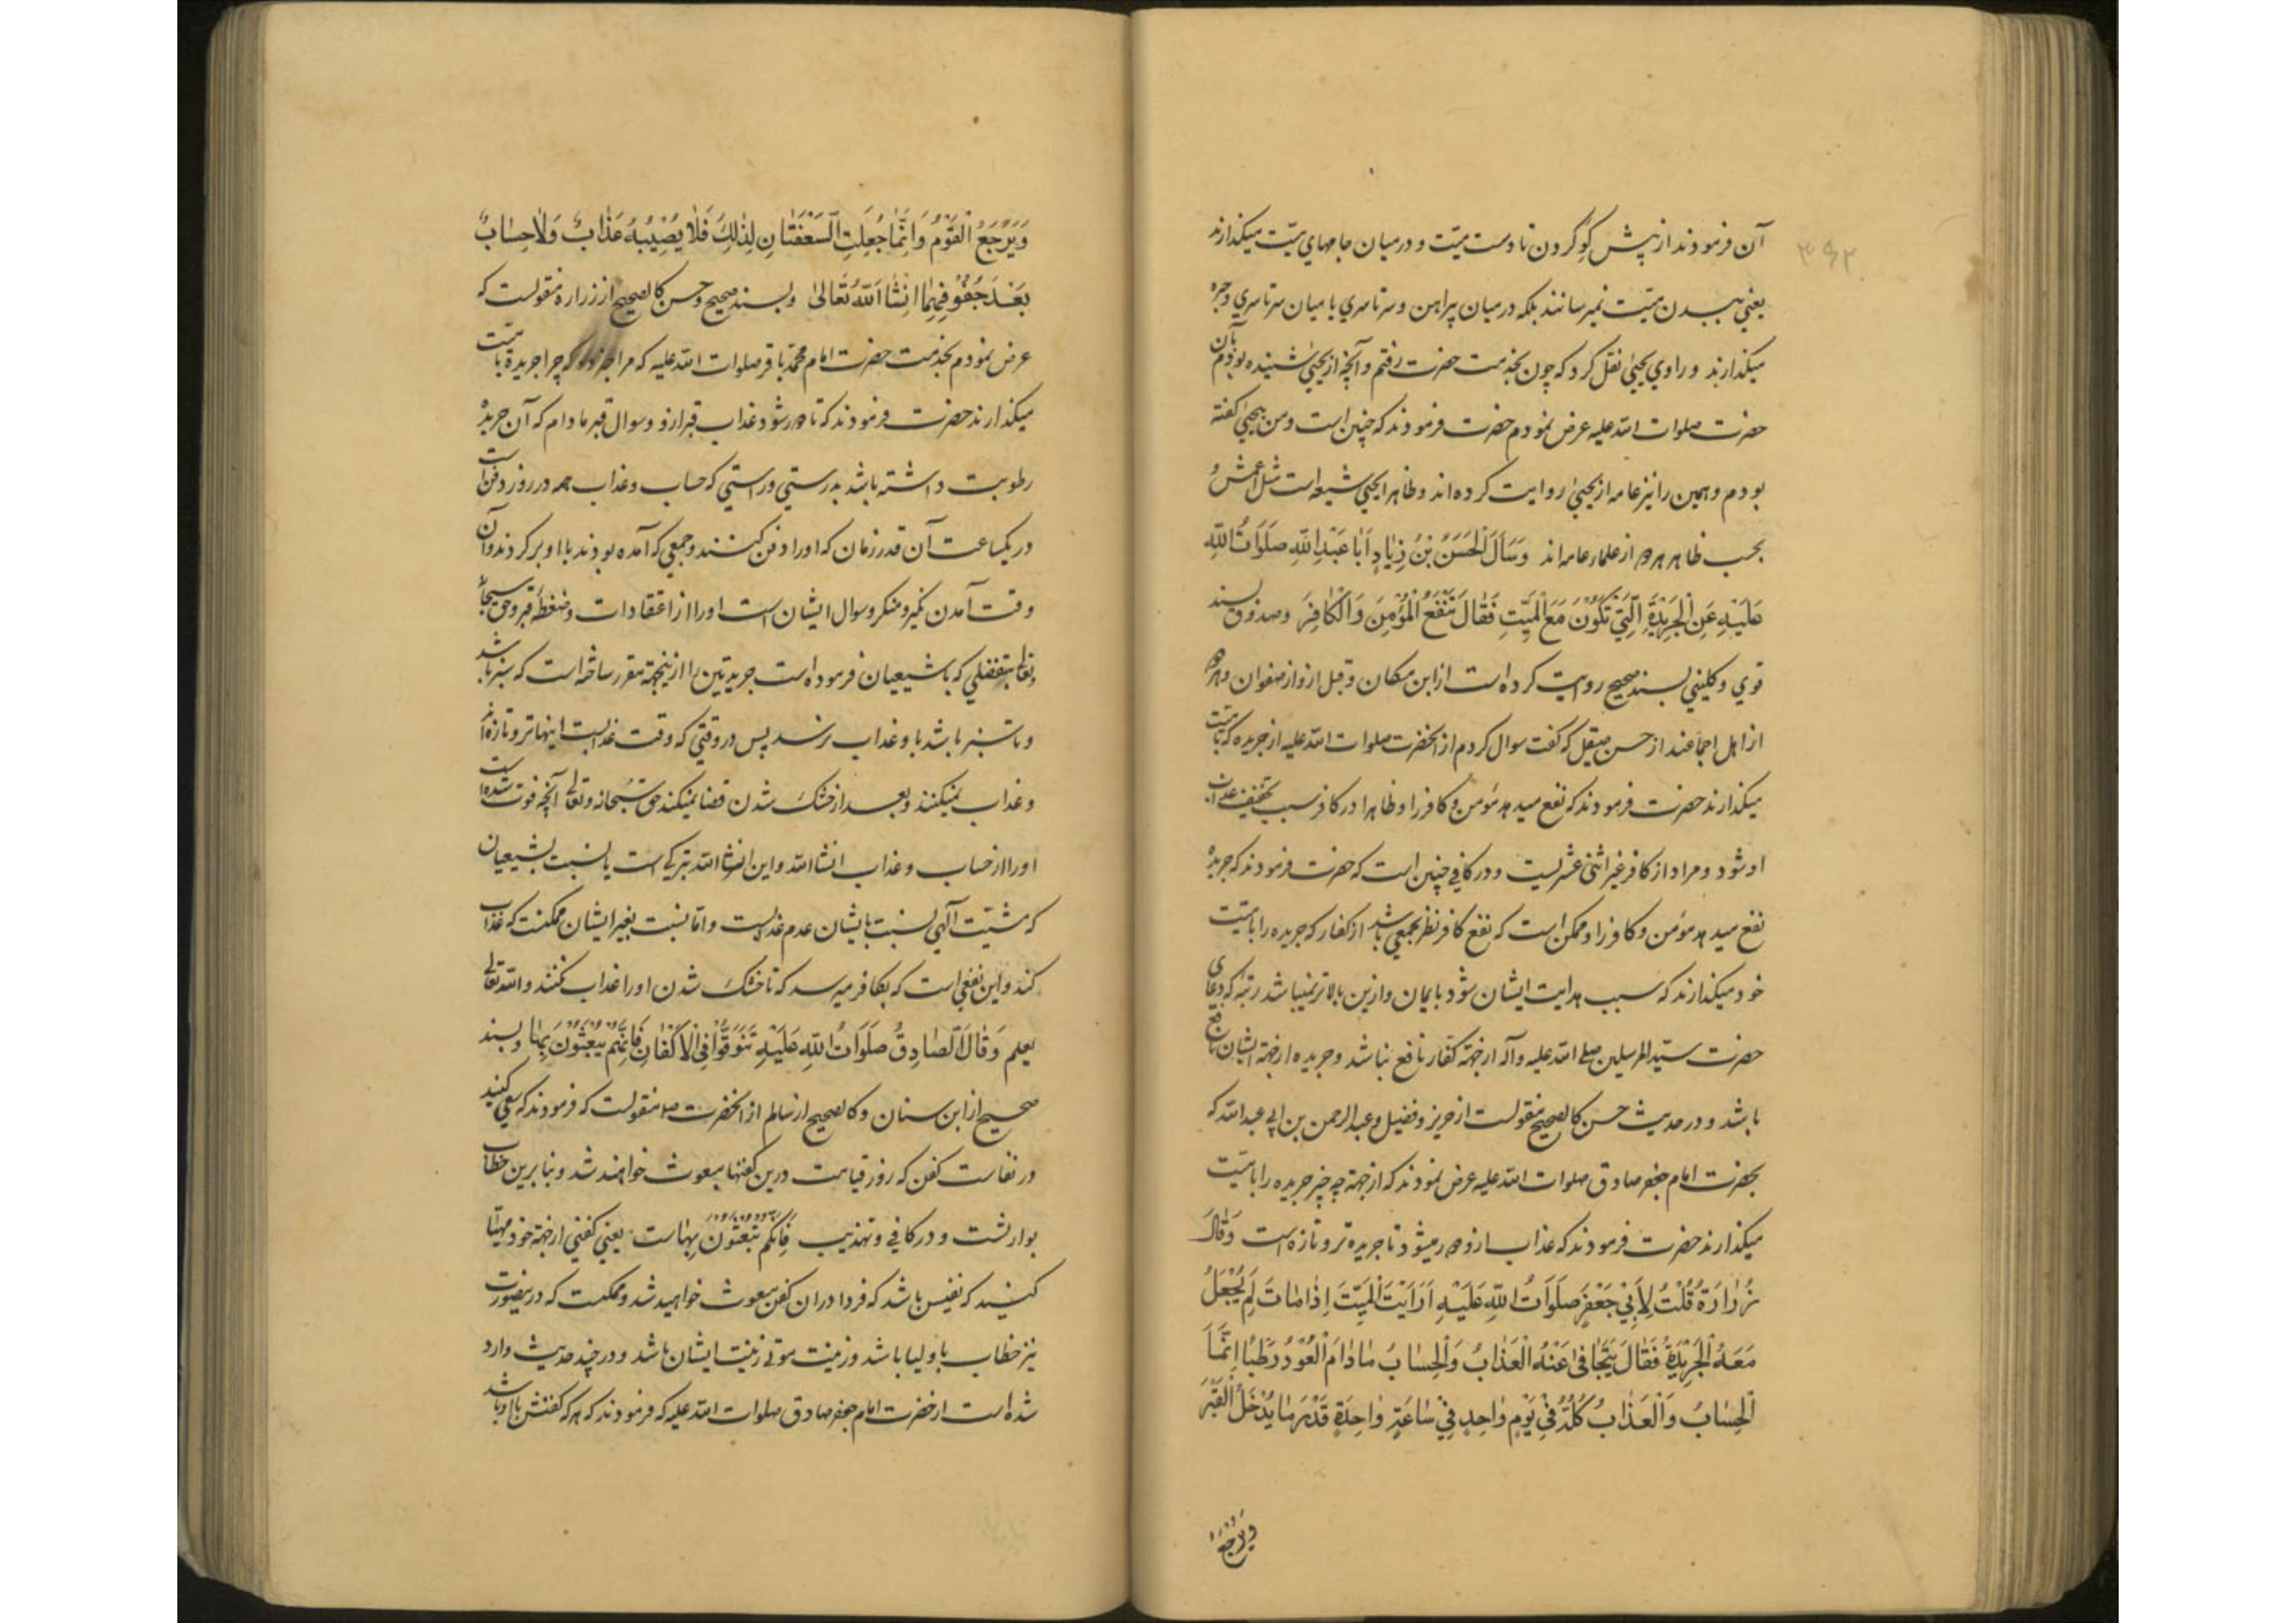 ۳۹۲
آن فرمودند از پیش کو کردن تا دست میّت و در میان جامهای میّت میکذارند
یعنی ببدن میّت نمیرسانند بلکه در میان پیراهن و سرتاسری یا میان سرتاسری و حبره
میکذارند و راوی یحییٰ نقل کرد که چون بخدمت حضرت رفتم و آنچه از یحییٰ شنیده بودم بآن
حضرت صلوات الله علیه عرض نمودم حضرت فرمودند که چنین است و من بیحییٰ کفته
بودم و همین را نیز عامه از یحییٰ روایت کرده‌اند و ظاهرا یحییٰ شیعه است مثل اعمش و
بحسب ظاهر هر دو از علماء عامه‌اند وَسَأَلَ الْحَسَنُ بْنُ زِیٰادٍ اَبٰا عَبْدِ اللّٰهِ صَلَوَاتُ اللّٰهِ
عَلَیْهِ عَنِ الْجَرِیْدَةِ الَّتِیْ تَکُوْنُ مَعَ الْمَیِّتِ فَقَالَ تَنْفَعُ الْمُؤْمِنَ وَالْکٰافِرَ وصدوق بسند
قوی و کلینی بسند صحیح روایت کرده است از ابن مسکان و قبل ازو از صفوان و هر دو
از اهل اجماعند از حسن صیقل که کفت سوال کردم از آنحضرت صلوات الله علیه از جریده که با میّت
میکذارند حضرت فرمودند که نفع میدهد مؤمن و کافر را و ظاهرا در کافر سبب تخفیف عذاب
او شود و مراد از کافر غیر اثنی عشریست و در کافی چنین است که حضرت فرمودند که جریده
نفع میدهد مؤمن و کافر را و ممکن است که نفع کافر نظر بجمعی باشد از کفار که جریده را با میّت
خود میکذارند که سبب هدایت ایشان شود بایمان و ازین بالاتر نمیباشد رتبه که دعای
حضرت سیّد المرسلین صلی الله علیه وآله از جهة کفّار نافع نباشد و جریده از جهة ایشان نافع
باشد و در حدیث حسن کالصحیح منقولست از حریز و فضیل و عبد الرحمن بن ابی عبد الله که
بحضرت امام جعفر صادق صلوات الله علیه عرض نمودند که از جهة چه چیز جریده را با میّت
میکذارند حضرت فرمودند که عذاب ازو دور میشود تا جریده تر و تازه است وَقٰالَ
زُرٰارَةُ قُلْتُ لِاَبِیْ جَعْفَرٍ صَلَوَاتُ اللّٰهِ عَلَیْهِ اَرَاَیْتَ الْمَیِّتَ اِذٰا مٰاتَ لِمَ یُجْعَلُ
مَعَهُ الْجَرِیْدَةُ فَقٰالَ یَتَجٰافیٰ عَنْهُ الْعَذٰابُ وَالْحِسٰابُ مٰا دٰامَ الْعُوْدُ رَطْبًا اِنَّمَا
الْحِسٰابُ وَالْعَذٰابُ کُلُّهُ فِیْ یَوْمٍ وٰاحِدٍ فِیْ سٰاعَةٍ وٰاحِدَةٍ قَدْرَ مٰا یُدْخَلُ الْقَبْرَ
ویرجع
وَیَرْجِعُ الْقَوْمُ وَاِنَّمٰا جُعِلَتِ السَّعَفَتٰانِ لِذٰلِکَ فَلٰا یُصِیْبُهُ عَذٰابٌ وَلٰا حِسٰابٌ
بَعْدَ جُفُوْفِهِمٰا اِنْشٰاءَ اللّٰهُ تَعٰالیٰ وبسند صحیح و حسن کالصحیح از زراره منقولست که
عرض نمودم بخدمت حضرت امام محمّد باقر صلوات الله علیه که مرا خبر ده که چرا جریدة با میّت
میکذارند حضرت فرمودند که تا دور شود عذاب قبر ازو و سوال قبر مادام که آن جریده
رطوبت داشته باشد بدرستی و راستی که حساب و عذاب همه در روز دفن است
در یکساعت آن قدر زمان که او را دفن کنند و جمعی که آمده بودند با او برکردند و آن
وقت آمدن نکیر و منکر و سوال ایشان است او را از اعتقادات و ضغطه قبر و حق سبحانه
وتعالی بتفضلی که با شیعیان فرموده است جریدتین را ازینجهة مقرر ساخته است که سبز باشد
و تا سبز باشد باو عذاب نرسد پس در وقتی که وقت عذابست اینها تر و تازه‌اند
و عذاب نمیکنند و بعد از خشک شدن قضا نمیکند حق سبحانه و تعالی آنچه فوت شده است
او را از حساب و عذاب انشاء الله و این انشاء الله تبرکی است یا نسبت بشیعیان
که مشیّت آلهی نسبت بایشان عدم عذابست و امّا نسبت بغیر ایشان ممکنست که عذاب
کند و این نفعی است که بکافر میرسد که تا خشک شدن او را عذاب نکنند والله تعالی
یعلم وَقٰالَ الصّٰادِقُ صَلَوَاتُ اللّٰهِ عَلَیْهِ تَنَوَّقُوْا فِی الْاَکْفٰانِ فَاِنَّهُمْ یُبْعَثُوْنَ بِهٰا وبسند
صحیح از ابن سنان و کالصحیح از سالم از آنحضرت ص منقولست که فرمودند که سعی کنید
در نفاست کفن که روز قیامت درین کفنها مبعوث خواهند شد و بنابرین خطاب
بوارثست و در کافی و تهذیب فَاِنَّکُمْ تُبْعَثُوْنَ بِهٰا است یعنی کفنی از جهة خود مهیّا
کنید که نفیس باشد که فردا در ان کفن مبعوث خواهید شد و ممکنست که درینصورت
نیز خطاب باولیا باشد و زینت موتی زینت ایشان باشد و در چند حدیث وارد
شده است از حضرت امام جعفر صادق صلوات الله علیه که فرمودند که هر که کفنش با او باشد